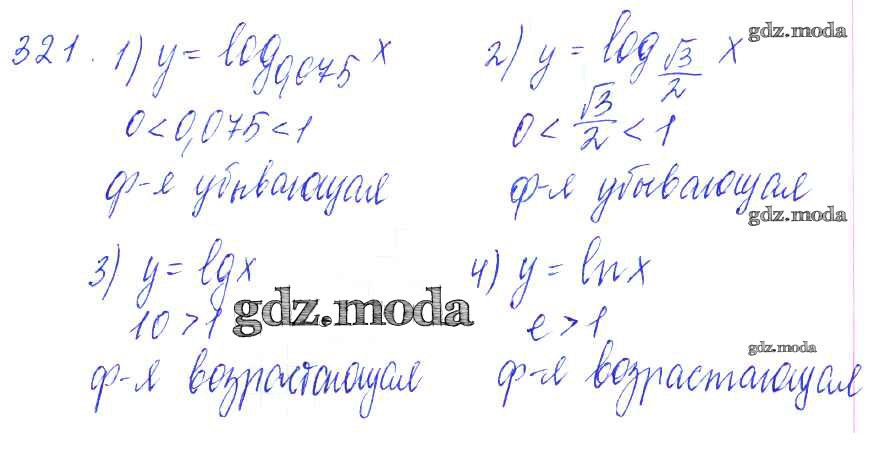 321. 1) y = log_{0,075} x
0 < 0,075 < 1
ф-я убывающая
2) y = log_{√3/2} x
0 < √3/2 < 1
ф-я убывающая
3) y = lg x
10 > 1
ф-я возрастающая
4) y = ln x
e > 1
ф-я возрастающая
gdz.moda
gdz.moda
gdz.moda
gdz.moda